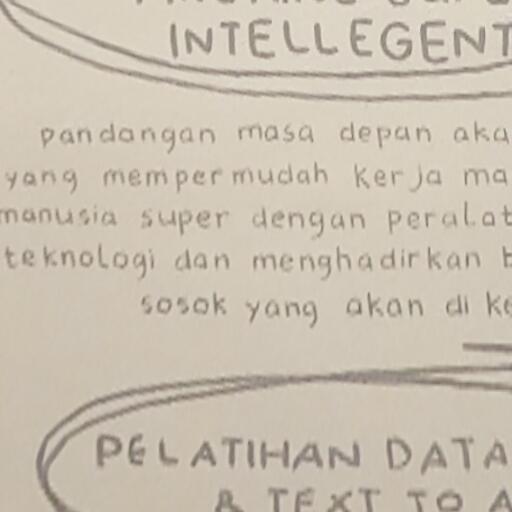 INTELLEGENT
pandangan masa depan aka
yang mempermudah kerja ma
manusia super dengan peralat
teknologi dan menghadirkan
sosok yang akan di ke
PELATIHAN DATA
& TEXT TO A